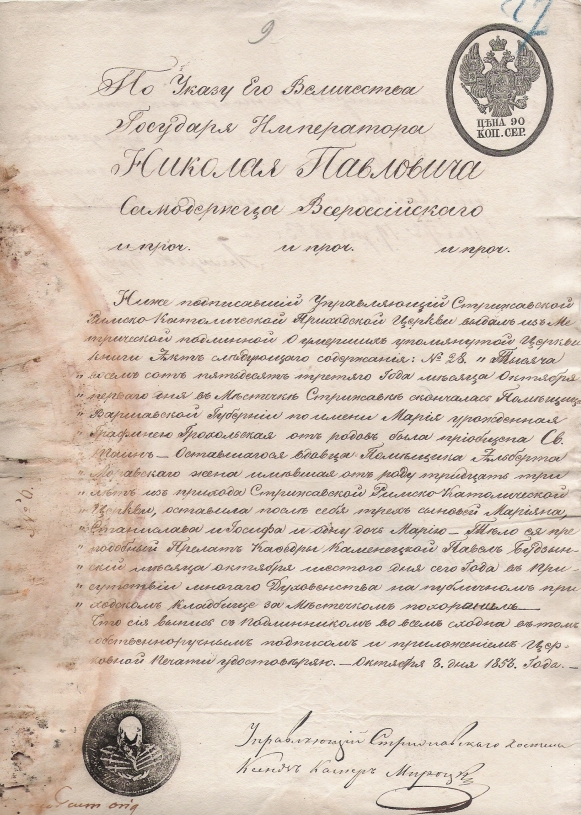 9
ЦѢНА 90
КОП. СЕР.
По Указу Его Величества
Государя Императора
Николая Павловича
Самодержца Всероссійскаго
и проч. и проч. и проч.
Ниже подписавшій Управляющій Стрижавской
Римско-Католической Приходской Церкви выдалъ изъ Ме-
трической подлинной О умершихъ упомянутой Церкви
Книги Актъ слѣдующаго содержанія: № 28 „Тысяча
„ восемь сотъ пятьдесятъ третяго Года мѣсяца Октября
„ перваго дня въ Мѣстечкѣ Стрижавкѣ скончалась Помѣщица
„ Варшавской Губерніи по имени Марія урожденная
„ Графинею Грохольская отъ родовъ была пріобщена Св.
„ Тайнъ – Оставшагося вдовца Помѣщика Альберта
„ жена имѣвшая отъ роду тридцать три
„ лѣтъ изъ прихода Стрижавской Римско-Католической
„ Церкви, оставила послѣ себя трехъ сыновей Маріяна,
„ Станислава и Іосифа и одну дочь Марію – Тѣло ея пре-
„ подобный Прелатъ Кафедры Каменецкой Павелъ
„ мѣсяца октября шестого дня сего Года въ При-
„ сутствіи многаго Духовенства на публичномъ при-
„ ходскомъ Кладбище за Мѣстечкомъ похоранилъ
Что сія выпись съ Подлинникомъ во всемъ сходна въ томъ
собственноручнымъ подписомъ и приложеніемъ Цер-
ковной Печати удостовѣряю. – Октября 8. дня 1853. Года. –
Управляющій Стрижавскаго Костела
Ксендзъ